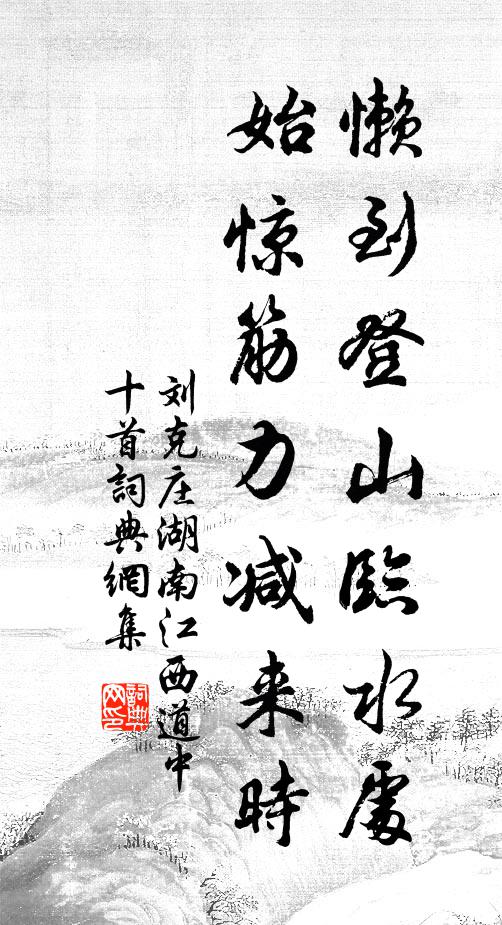 懒到登山臨水處
始惊筋力减来時
刘克庄湖南江西道中
十首詞典網集
詞典
网印